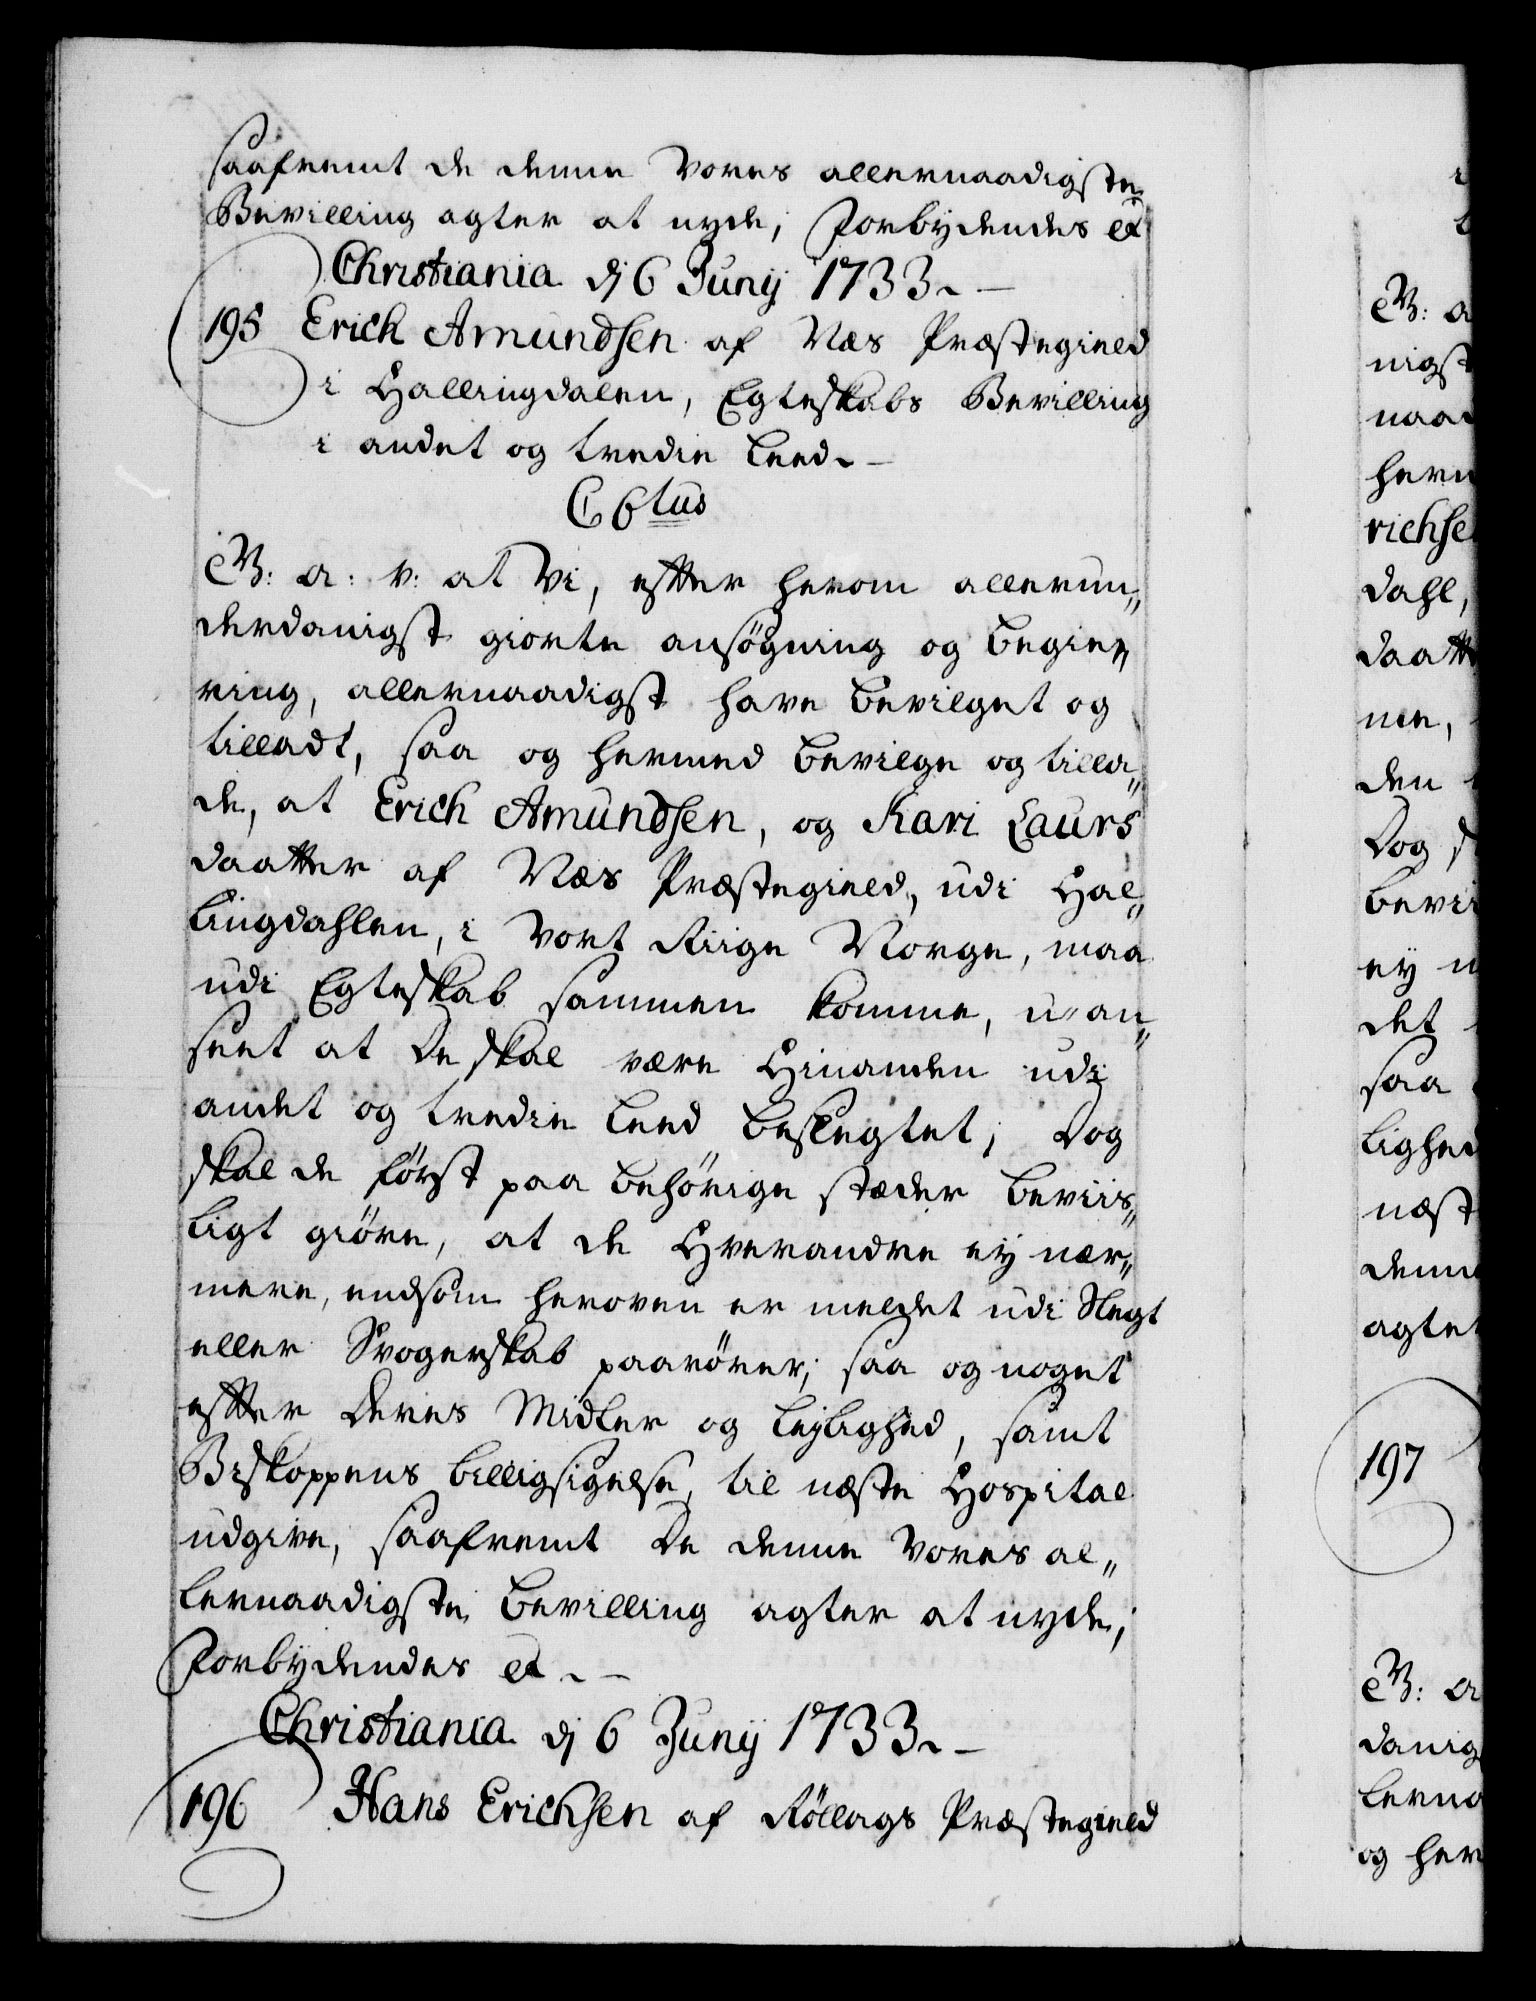 saafremt de denne Vores allernaadigste
Bevilling agter at nyde, Forbydendes et
Christiania dj 6 Junij 1733.
195 Erick Amundsen af Næs Præstegield
i Hallingdalen, Egteskabs Bevilling
i andet og tredie Leed.
C 6tus
G: A: V: at Vi, efter herom allerun„
derdanigst giorte ansøgning og begie„
ring, allernaadigst have bevilget og
tilladt, saa og hermed bevilge og tilla„
de, at Erich Amundsen, og Kari Laurs
daatter af Næs Præstegield, udi Hal„
lingdahlen, i Vort Riige Norge, maa
udi Egteskab sammen komme, u-an„
seet at De skal være Hinanden udi
andet og tredie Leed beslegtet; Dog
skal de først paa behørige stæder beviis„
ligt giøre, at de Hverandre ey nær„
mere, end som heroven er meldet udi Slegt
eller Svogerskab paarører; saa og noget
efter Deres Midler og Leylighed, samt
Biskoppens billigsigelse, til næste Hospital
udgive, saafremt De denne Vores al„
lernaadigste Bevilling agter at nyde,
Forbydendes et.
Christiania dj 6 Junij 1733.
196 Hans Erichsen af Rollags Præstegield
G: A
nigst
naad
herm
richse
dahl,
daatt
me,
den
Dog s
bevii
ey n
det
saa
lighed
næst
denn
agter
197
G: A
danig
lerna
og her